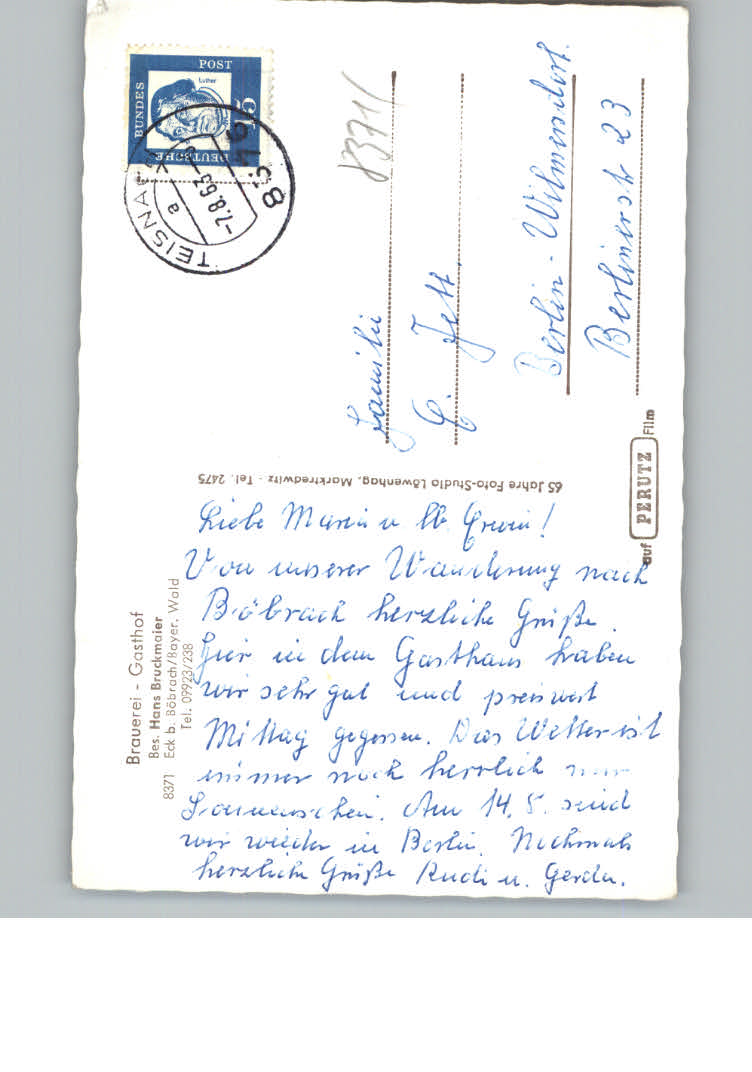 Brauerei - Gasthof
Bes. Hans Bruckmaier
8371 Eck b. Böbrach/Bayer. Wald
Tel. 09923/238
Liebe Maria u lb. Erwin!
Von unserer Wanderung nach
Böbrach herzliche Grüße.
Hier in dem Gasthaus haben
wir sehr gut und preiswert
Mittag gegessen. Das Wetter ist
immer noch herrlich nur
Sonnenschein. Am 14. 5. sind
wir wieder in Berlin. Nochmals
herzliche Grüße Rudi u. Gerda.
65 Jahre Foto-Studio Löwenhag, Marktredwitz - Tel. 2475
auf PERUTZ Film
DEUTSCHE BUNDES POST
Luther
15
TEISNACH
a
-7.8.63
8371/
Familie
E. Jett.
Berlin-Wilmersdorf.
Berlinerstr 23